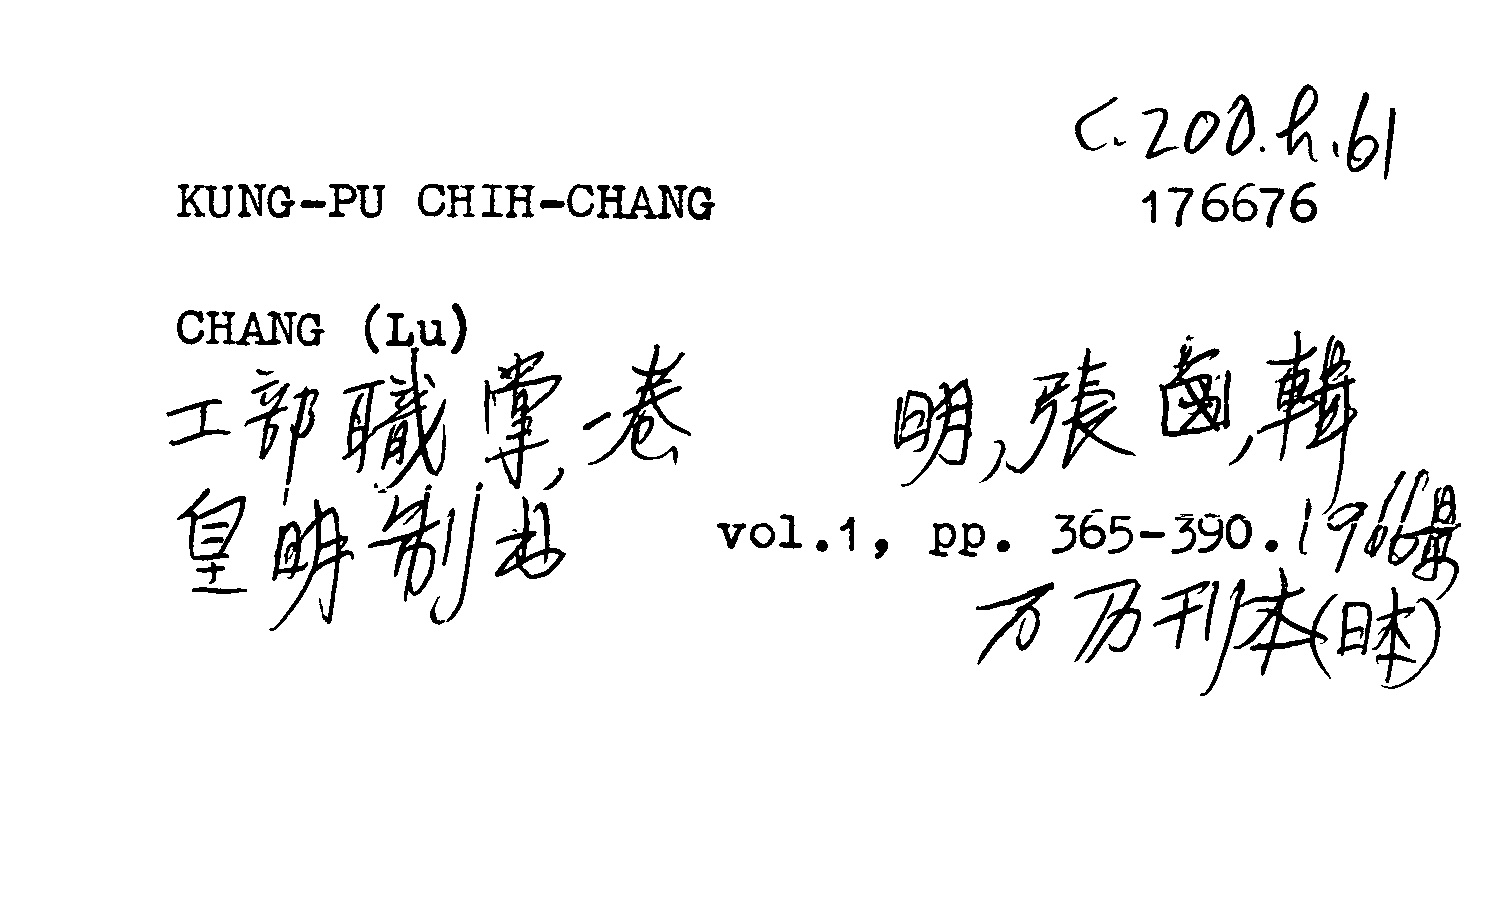 C.200.h.61
KUNG-PU CHIH-CHANG 176676
CHANG (Lu)
工部職掌,一卷 明,張鹵,輯
皇明制书 vol.1, pp. 365-390. 1966景
万历刊本(日本)